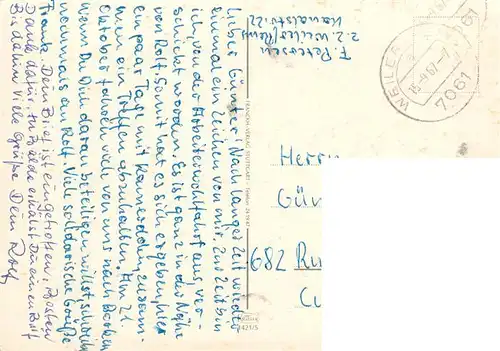 F. Petersen
z.Z. Weiler/Rems
WEILER
15.-9.67-17
7061
Lieber Günter! Nach langer Zeit wieder
einmal ein Zeichen von mir. Zur Zeit bin
ich, von der Arbeiterwohlfahrt aus, ver-
schickt worden. Es ist ganz in der Nähe
von Rolf. Somit hat es sich ergeben, hier
ein paar Tage mit Kameraden zusam-
men ein Treffen abzuhalten. Am 21.
Oktober fahren viele von uns nach
wenn Du Dich daran beteiligen willst, schreibe
nochmals an Rolf. Viele solidarische Grüße
Franz. Dein Brief ist eingetroffen, besten
Dank dafür. In Bälde erhältst Du einen Brief
Bis dahin viele Grüße Dein Rolf
FRANCKH-VERLAG STUTTGART
Herrn
Gün
682 Ru